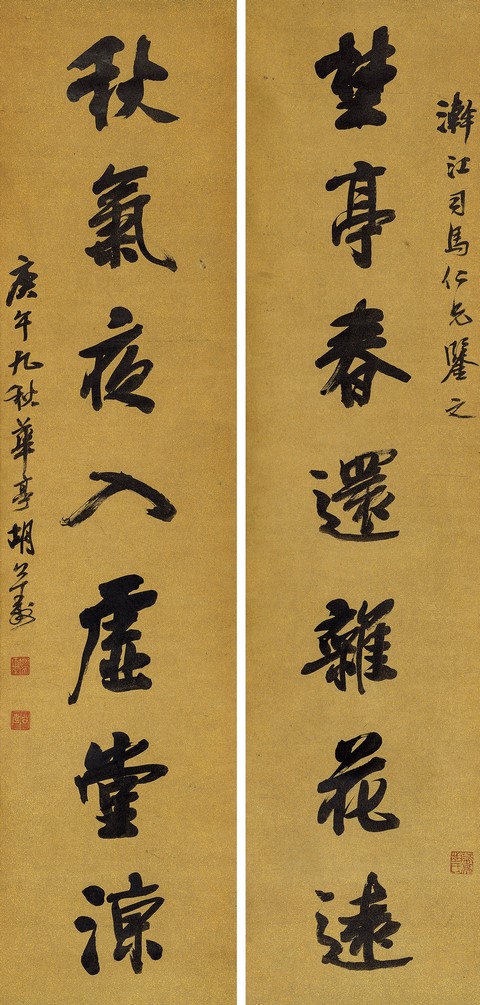 澣江司馬仁兄鑒之
埜亭春還雜花遠
秋氣夜入虛堂涼
庚午九秋華亭胡公壽